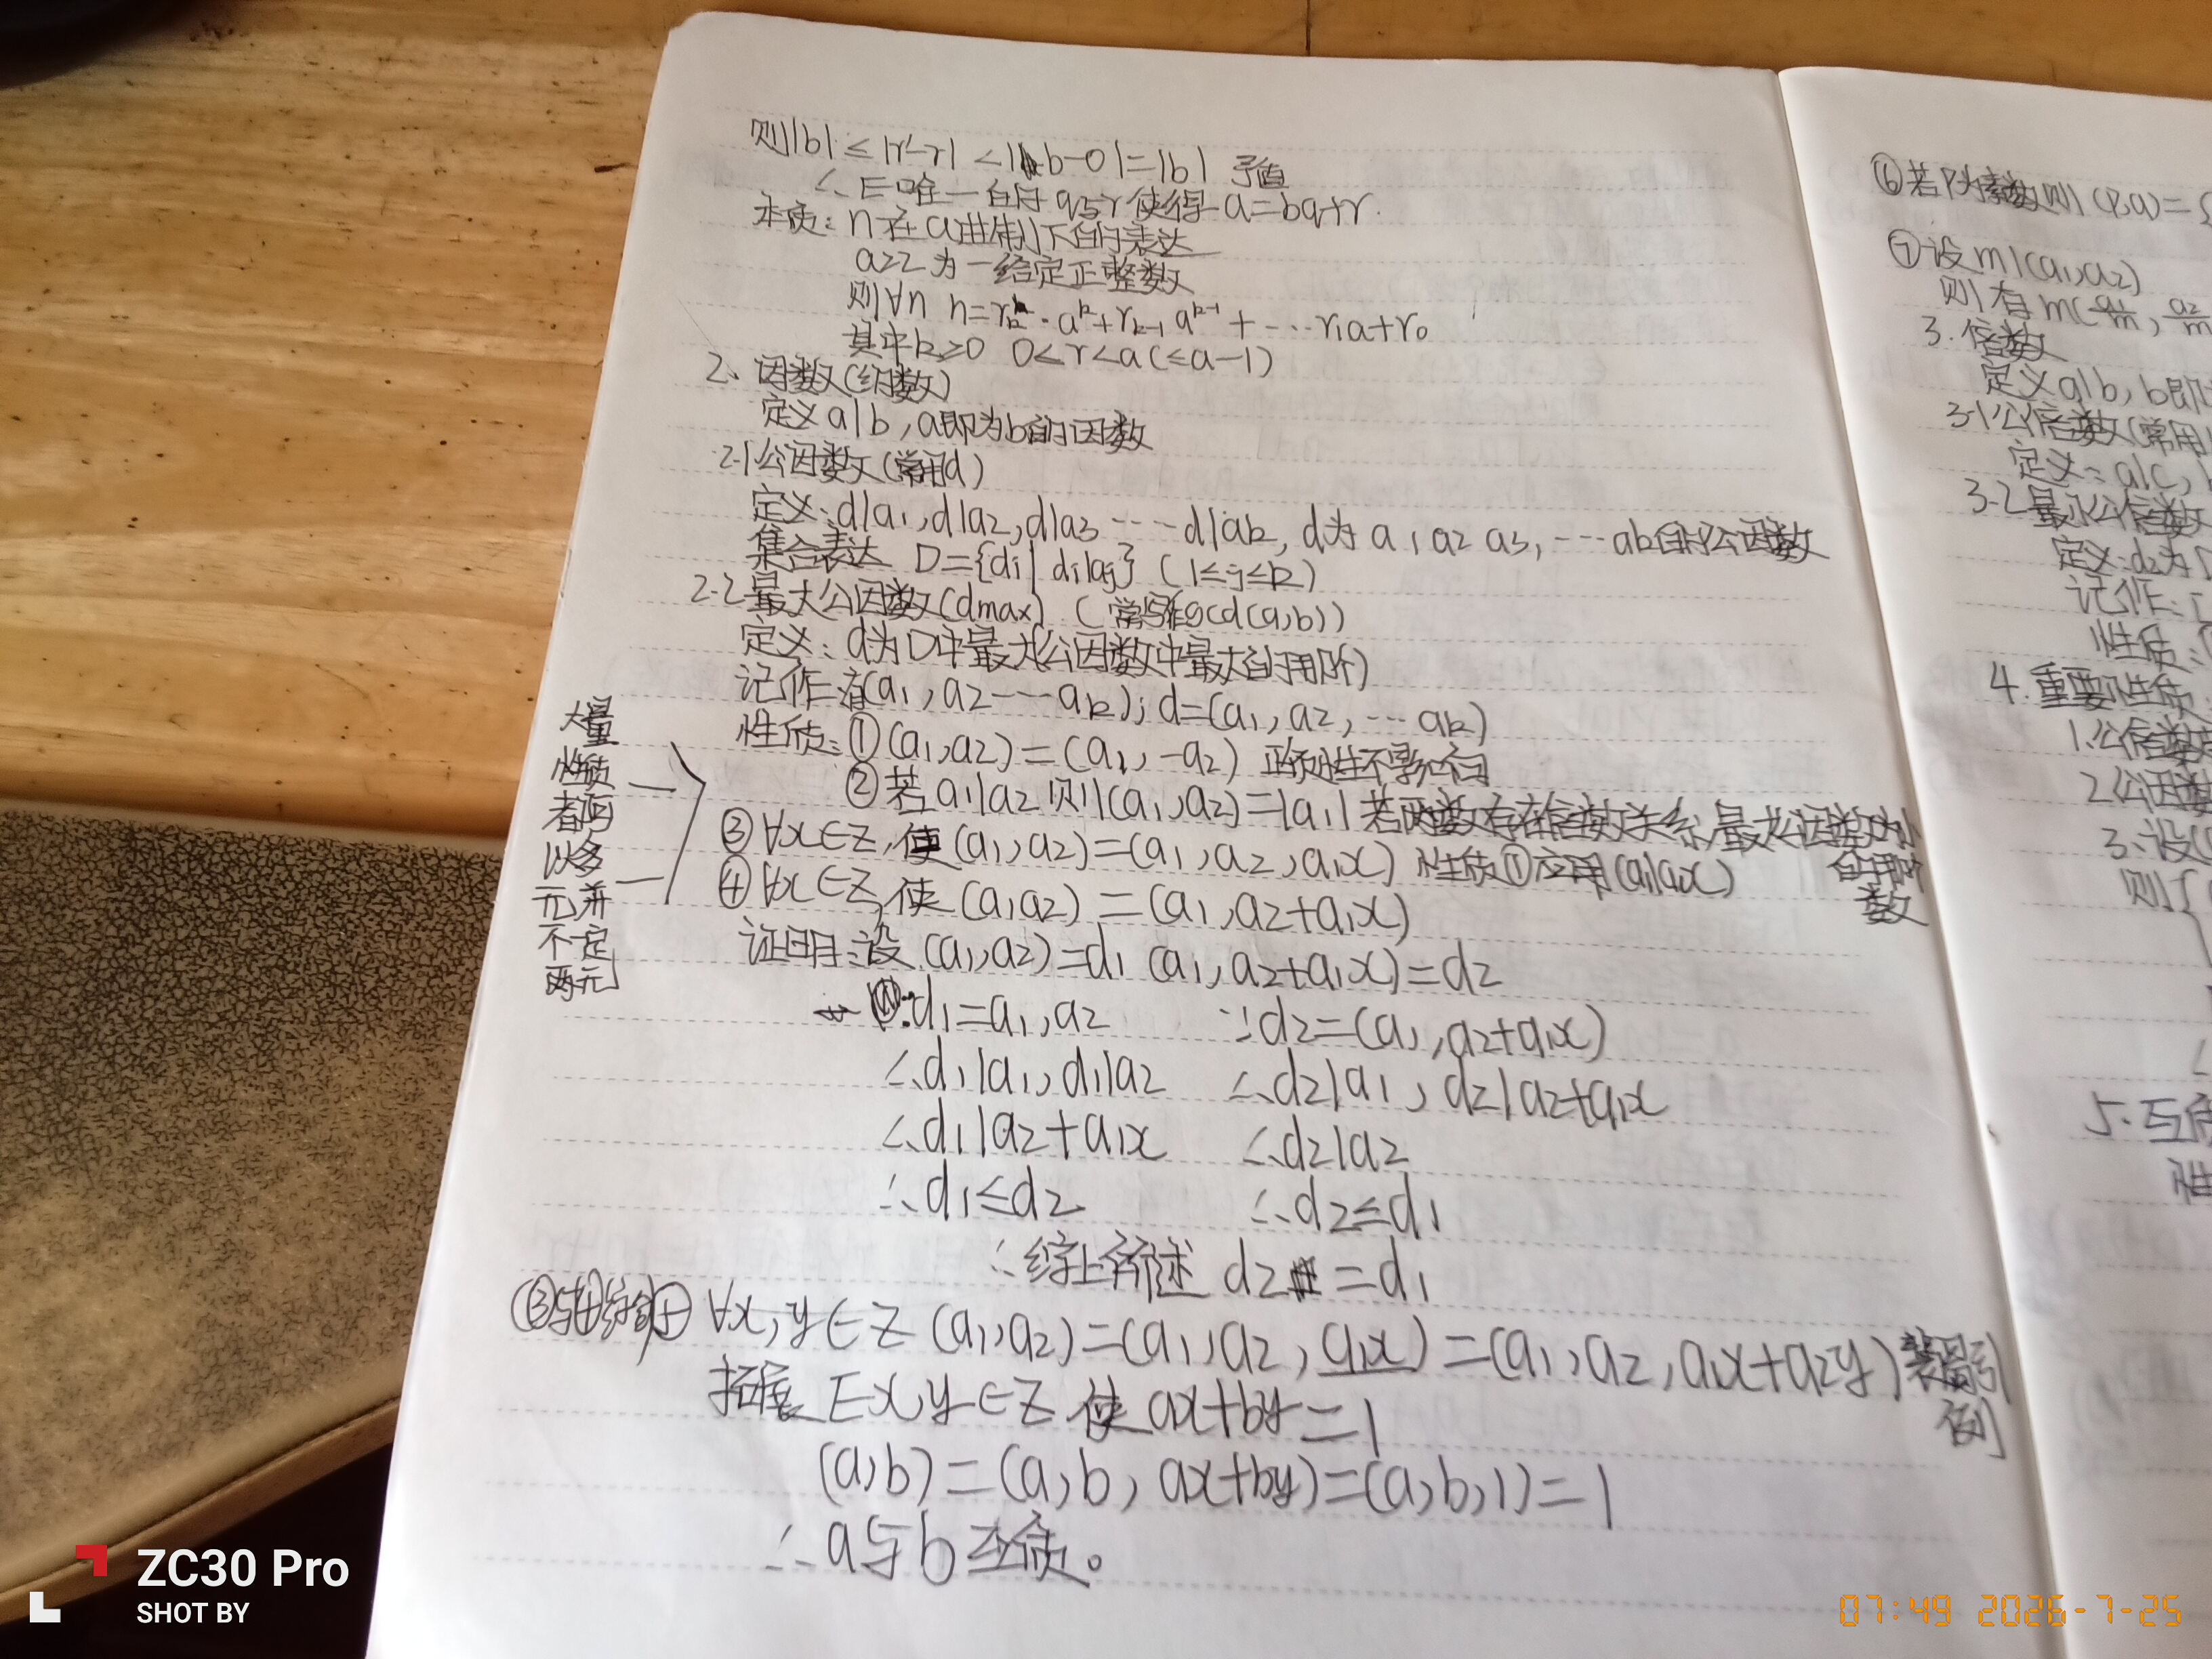 则|b| ≤ |r'-r| < |b-0| = |b| 矛盾
∴ ∃唯一的q与r使得 a=bq+r.
本质: n在a进制下的表达
a≥2 为一给定正整数
则∀n n=rₖ·aᵏ+rₖ₋₁aᵏ⁻¹+…r₁a+r₀
其中k≥0 0<r<a(≤a-1)
2、因数(约数)
定义a|b, a即为b的因数
2-1公因数(常用d)
定义: d|a₁, d|a₂, d|a₃ ……d|aₖ, d为a₁ a₂ a₃, …aₖ的公因数
集合表达 D={dᵢ| dᵢ|aⱼ} (1≤j≤k)
2-2最大公因数(dmax) (常写作gcd(a,b))
定义: d为D中最大(公因数中最大的那个)
记作:(a₁, a₂……aₖ); d=(a₁, a₂, …aₖ)
性质: ①(a₁,a₂)=(a₁, -a₂) 正负性不影响
②若a₁|a₂则(a₁,a₂)=|a₁| 若两数存在倍数关系,最大公因数为小的那个数
③∀x∈Z, 使(a₁,a₂)=(a₁,a₂,a₁x) 性质①应用(a₁|a₁x)
④∀x∈Z, 使(a₁a₂)=(a₁,a₂+a₁x)
大量
性质
都可
以多
元并
不定
两元
证明:设(a₁,a₂)=d₁ (a₁,a₂+a₁x)=d₂
∵d₁=a₁,a₂ ∵d₂=(a₁,a₂+a₁x)
∴d₁|a₁, d₁|a₂ ∴d₂|a₁, d₂|a₂+a₁x
∴d₁|a₂+a₁x ∴d₂|a₂
∴d₁≤d₂ ∴d₂≤d₁
∴综上所述 d₂=d₁
③与④结合 ∀x,y∈Z (a₁,a₂)=(a₁,a₂,a₁x)=(a₁,a₂,a₁x+a₂y) 裴蜀引例
拓展 ∃x,y∈Z 使ax+by=1
(a,b)=(a,b, ax+by)=(a,b,1)=1
∴a与b互质。
⑥若P为素数则(P,a)={
⑦设m|(a₁,a₂)
则有m(a₁/m, a₂/m
3.倍数
定义a|b, b即
3-1公倍数(常用
定义:a|c,
3-2最小公倍数
定义:d₂为
记作:
性质:
4.重要性质
1.公倍数
2.公因数
3.设
则{
5.互质
性
ZC30 Pro
SHOT BY
07:49 2026-7-25